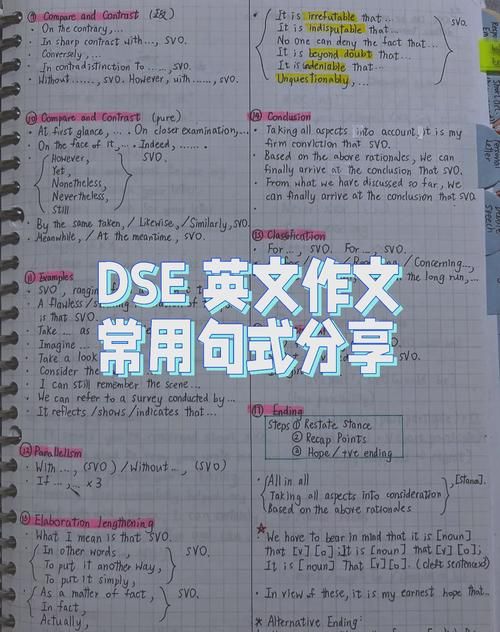 ⑨ Compare and Contrast
· On the contrary,...
· In sharp contrast with..., SVO.
· Conversely,...
· In contradistinction to ......, SVO.
· Without ......, SVO. However, with ......, SVO.
⑩ Compare and Contrast (pure)
· At first glance, .... On closer examination,...
· On the face of it, .... Indeed, .......
However,
Yet,
Nonetheless,
Nevertheless,
Still
SVO.
· By the same token, / Likewise, / Similarly, SVO.
· Meanwhile, / At the meantime, SVO.
⑪ Examples
· SVO,
· A flawless /
is that SVO.
· Take ... as
· Imagine
· Take a look
· Consider the
· I can still remember the scene...
· We can refer to a survey conducted by...
· It reflects /shows /indicates that...
⑫ Parallelism
· With ..., (SVO) / Without..., (SVO)
· If ..., ... x 3
⑬ Elaboration lengthening
· What I mean is that SVO.
In other words,
To put it another way,
To put it simply,
SVO.
As a matter of fact,
In fact,
Actually,
SVO.
It is irrefutable that...
It is indisputable that...
No one can deny the fact that...
It is beyond doubt that...
It is undeniable that...
Unquestionably,
SVO.
⑭ Conclusion
· Taking all aspects into account, it is my
firm conviction that SVO.
· Based on the above rationales, we can
finally arrive at the conclusion that SVO.
· From what we have discussed so far, we
can finally arrive at the conclusion that SVO
⑮ Classification
For..., SVO. For..., SVO.
/ Concerning...,
the long run,...
SVO.
DSE 英文作文
常用句式分享
⑰ Ending
Steps ① Restate Stance
② Recap Points
③ Hope / +ve ending
All in all
Taking all aspects into consideration
Based on the above rationales
, [Stance].
★ We have to bear in mind that it is [noun]
that [v] [o]; It is [noun] that [v] [o];
It is [noun] that [v] [o]. (cleft sentences)
· In view of these, it is my earnest hope that...
* Alternative Ending: